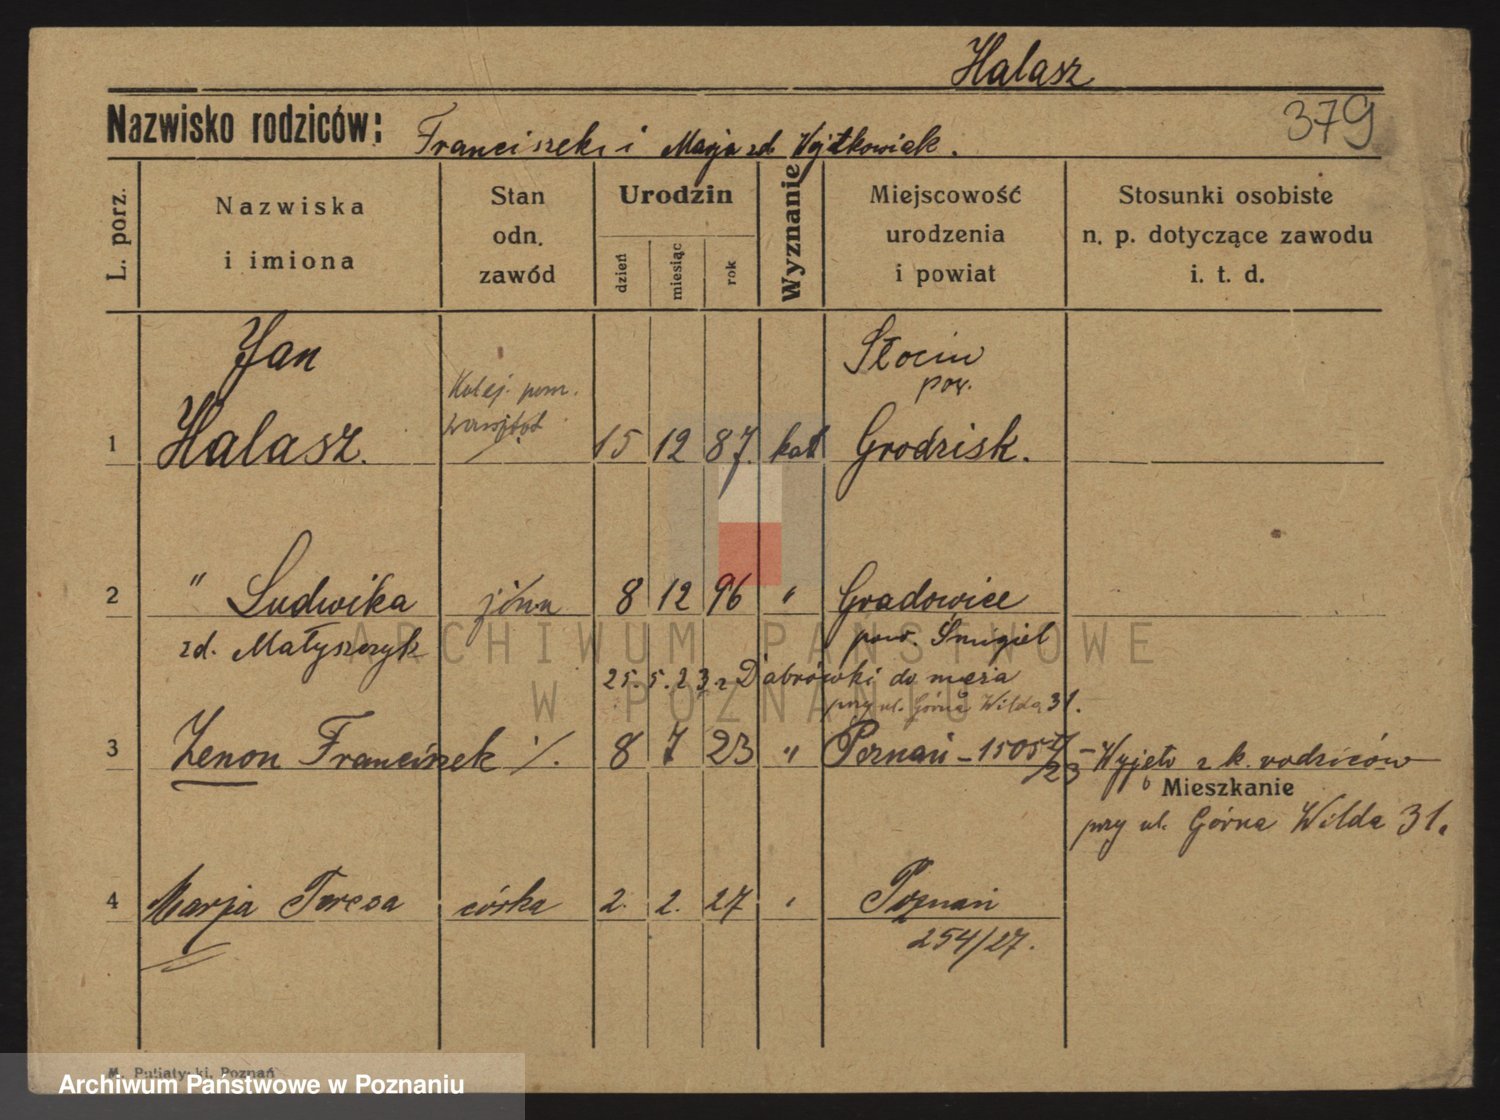 Halasz
379
Nazwisko rodziców: Franciszek i Marja zd Wojtkowiak.
L. porz.
Nazwiska i imiona
Stan odn. zawód
Urodzin
dzień
miesiąc
rok
Wyznanie
Miejscowość urodzenia i powiat
Stosunki osobiste n. p. dotyczące zawodu i. t. d.
Jan Słocin
Kolej. pom. pow.
1 Halasz. warsztat 15 12 87. kat Grodzisk.
2 " Ludwika żona 8 12 96 " Gradowice
zd. Matyszczyk pow. Śmigiel
25.5.23 z Dąbrówki do męża
przy ul. Górna Wilda 31.
3 Zenon Franciszek 8 7 23 " Poznań – 1505 /23 – Wyjęto z k. rodziców
Mieszkanie
przy ul. Górna Wilda 31.
4 Marja Teresa córka 2. 2. 27 " Poznań
254/27.
ARCHIWUM PAŃSTWOWE
W POZNANIU
Poznań
Archiwum Państwowe w Poznaniu